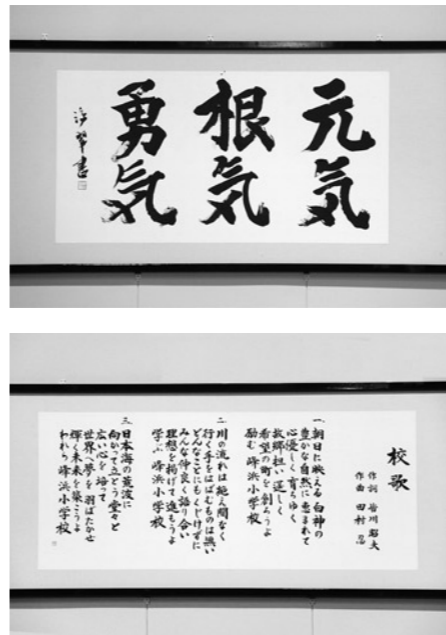 元気
根気
勇気
書
校歌
作詞 皆川昭夫
作曲 田村忍
一、朝日に映える白神の
豊かな自然に恵まれて
心優しく育ちゆく
故郷担い逞しく
希望の町を創ろうよ
励む峰浜小学校
二、川の流れは絶え間なく
行く手をはばむものは無い
どんなことにもくじけずに
みんな仲良く語り合い
理想を掲げて進もうよ
学ぶ峰浜小学校
三、日本海の荒波に
向かって立とう堂々と
広い心を培って
世界へ夢を羽ばたかせ
輝く未来を築こうよ
われら峰浜小学校